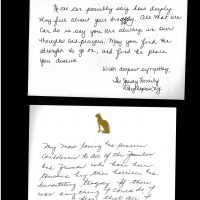 How can possibly say how deeply
they feel about your tragedy. All that we
can do is say you are always in our
thoughts and prayers. May you find the
strength to go on, and find the peace
you deserve.
With deepest sympathy,
The Family
My most loving and sincere
condolence to all of the families
and friends who have been
touched by this horrible and
devastating tragedy. If there
was anything I could do if
I that all I